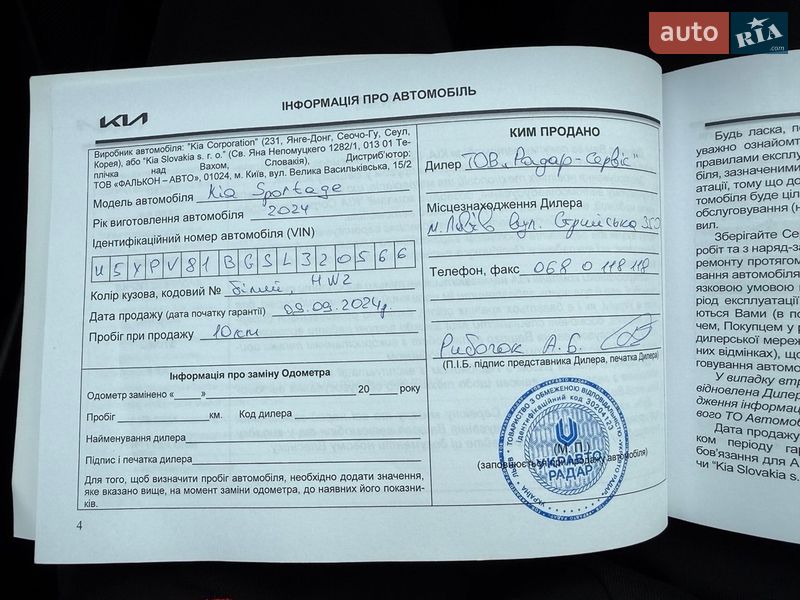 auto RIA .com
KIA
ІНФОРМАЦІЯ ПРО АВТОМОБІЛЬ
Виробник автомобіля: "Kia Corporation" (231, Янге-Донг, Сеочо-Гу, Сеул,
Корея), або "Kia Slovakia s. r. o." (Св. Яна Непомуцкего 1282/1, 013 01 Те-
плічка над Вахом, Словакія), Дистриб'ютор:
ТОВ «ФАЛЬКОН – АВТО», 01024, м. Київ, вул. Велика Васильківська, 15/2
Модель автомобіля Kia Sportage
Рік виготовлення автомобіля 2024
Ідентифікаційний номер автомобіля (VIN)
U5YPV81BGSL320566
Колір кузова, кодовий № білий, HW2
Дата продажу (дата початку гарантії) 09.09.2024р
Пробіг при продажу 10км
Інформація про заміну Одометра
Одометр замінено «____» ____ 20___ року
Пробіг ____ км. Код дилера ____
Найменування дилера
Підпис і печатка дилера
Для того, щоб визначити пробіг автомобіля, необхідно додати значення,
яке вказано вище, на момент заміни одометра, до наявних його показни-
ків.
4
КИМ ПРОДАНО
Дилер ТОВ "Радар-Сервіс"
Місцезнаходження Дилера
м. Львів вул. Стрийська 350
Телефон, факс 068 0 118 118
А. Б.
(П.І.Б. підпис представника Дилера, печатка Дилера)
ТОВАРИСТВО З ОБМЕЖЕНОЮ ВІДПОВІДАЛЬНІСТЮ
Ідентифікаційний код 30204723
(М. П.)
УКРАВТО
РАДАР
УКРАЇНА
(заповнюється при продажу автомобіля)
Будь ласка, по
уважно ознайомт
правилами експлу
біля, зазначеними
атації, тому що до
томобіля буде ціл
обслуговування (н
вил.
Зберігайте Се
робіт та з наряд-за
ремонту протягом
вання автомобіля
язковою умовою
ріод експлуатації
ються Вами (в по
чем, Покупцем у р
дилерської мереж
них відмінках), що
говування автомо
У випадку втр
відновлена Дилер
дження інформаці
вого ТО Автомоб
Дата продажу
ком періоду гар
бов'язання для А
чи "Kia Slovakia s.